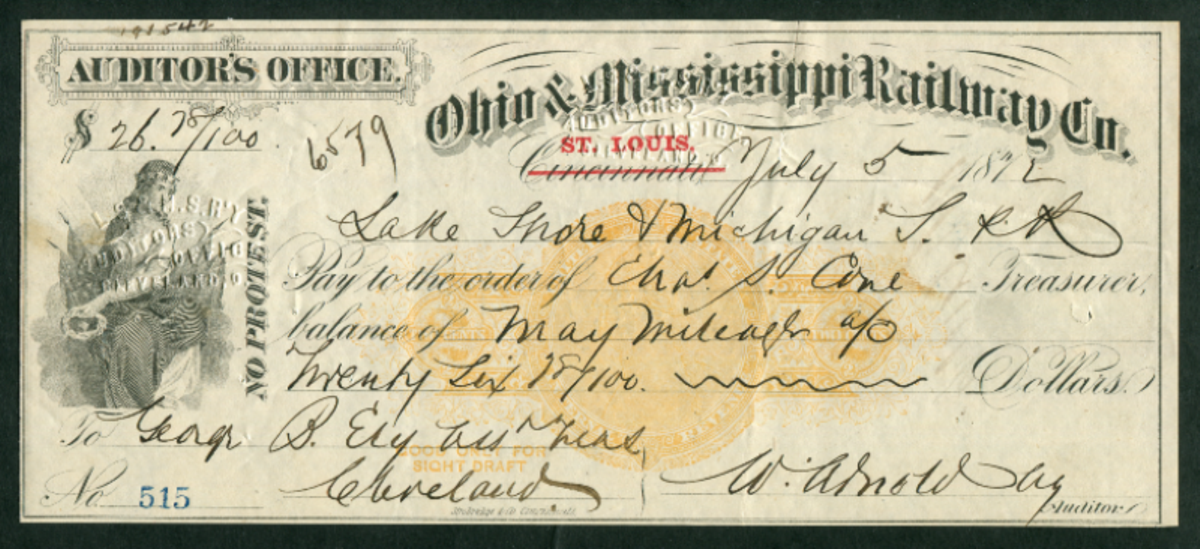 191542
AUDITOR'S OFFICE.
Ohio & Mississippi Railway Co.
$ 26.78/100
6579
ST. LOUIS.
Cincinnati, July 5 1872
Lake Shore & Michigan S. R.R
Pay to the order of Chas. S. Cone Treasurer,
balance of May Mileage a/c
Twenty Six 78/100 Dollars.
NO PROTEST.
L.S. & M.S. R'Y
AUDITORS' OFFICE
CLEVELAND, O
AUDITORS' OFFICE
To George B. Ely Asst Treas,
GOOD ONLY FOR
SIGHT DRAFT
Cleveland
No. 515
W. Arnold
Auditor